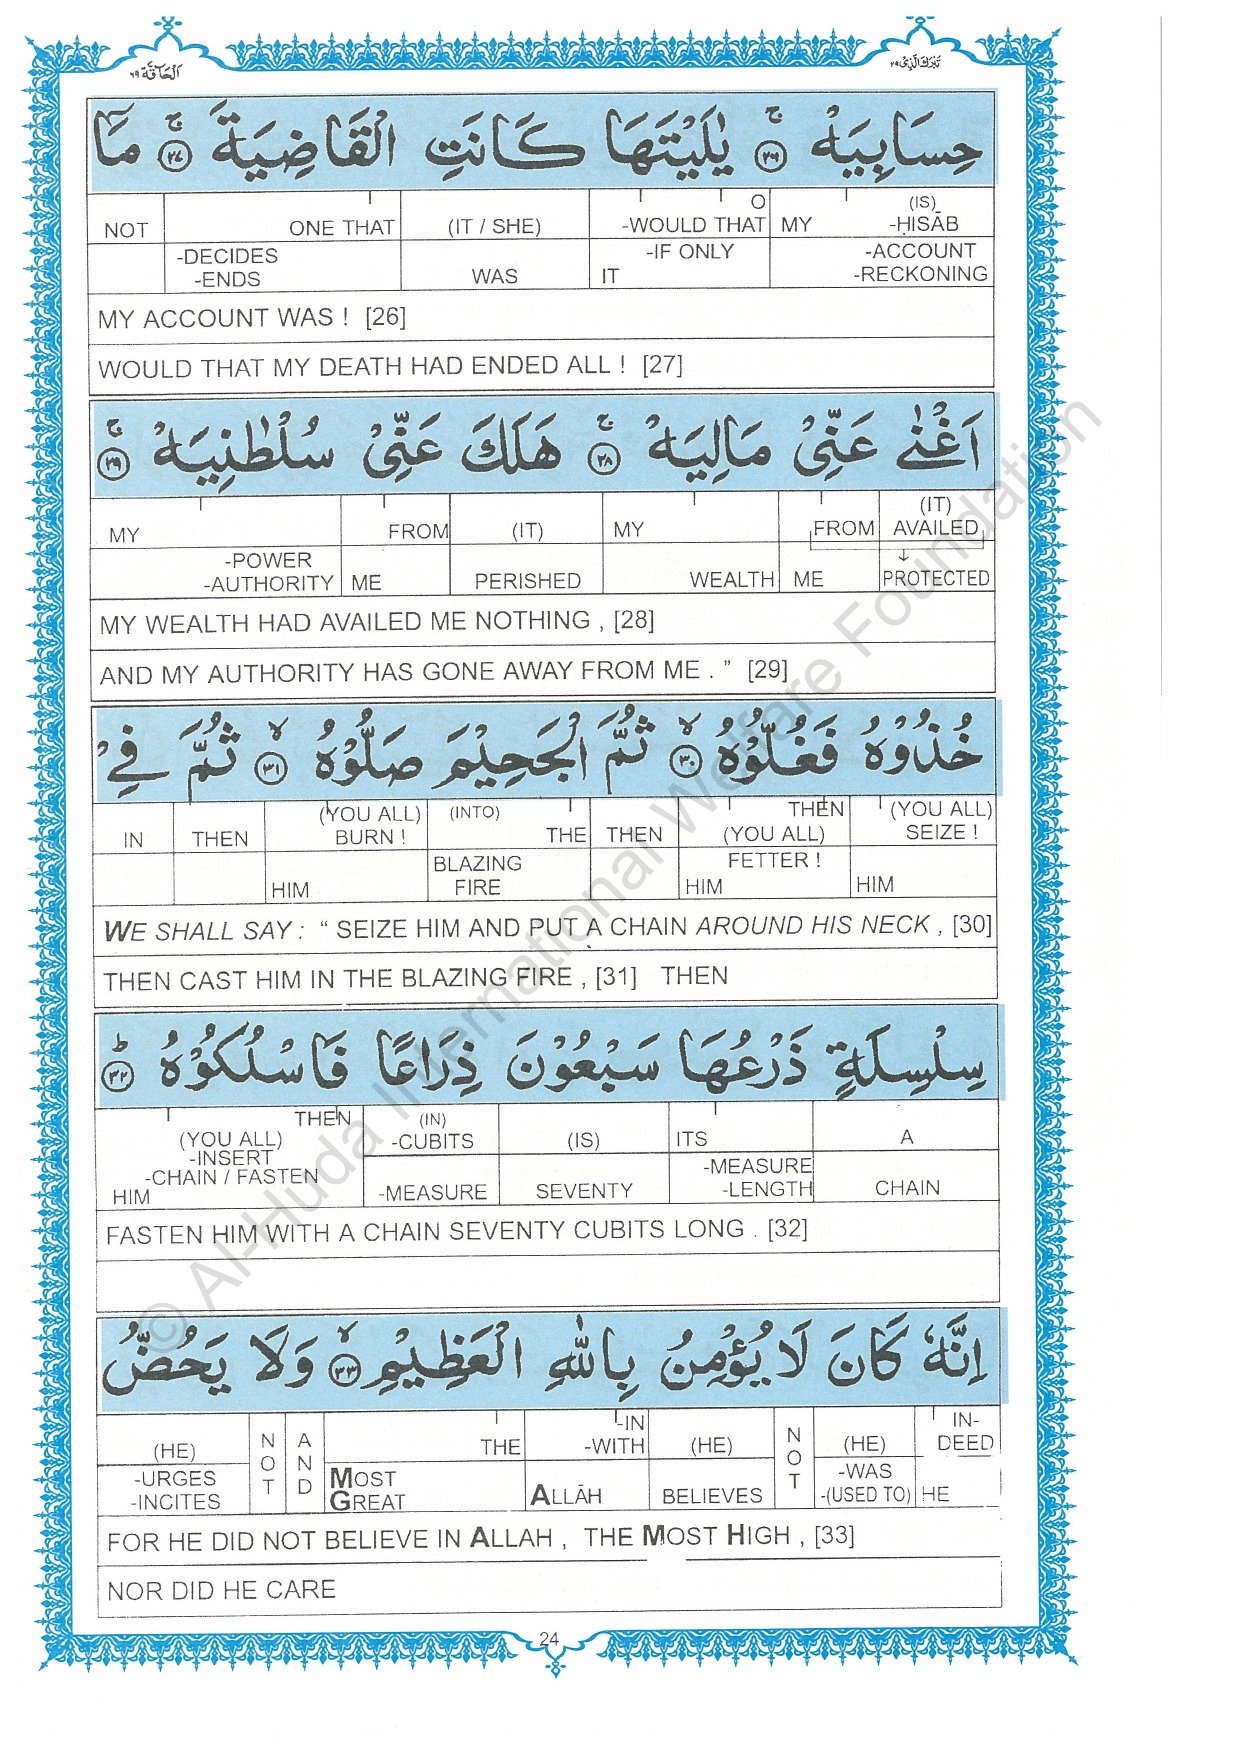 اَلْحَآقَّة ٦٩
تَبٰرَكَ الَّذِیْ ٢٩
حِسَابِيَهْ ۚ ﴿٢٦﴾ يٰلَيْتَهَا كَانَتِ الْقَاضِيَةَ ۚ ﴿٢٧﴾ مَآ
NOT ONE THAT (IT / SHE) -WOULD THAT O MY (IS) -HISĀB
-DECIDES -ENDS WAS IT -IF ONLY -ACCOUNT -RECKONING
MY ACCOUNT WAS ! [26]
WOULD THAT MY DEATH HAD ENDED ALL ! [27]
اَغْنٰى عَنِّىْ مَالِيَهْ ۚ ﴿٢٨﴾ هَلَكَ عَنِّىْ سُلْطٰنِيَهْ ۚ ﴿٢٩﴾
MY FROM (IT) MY FROM (IT) AVAILED
-POWER -AUTHORITY ME PERISHED WEALTH ME PROTECTED
MY WEALTH HAD AVAILED ME NOTHING , [28]
AND MY AUTHORITY HAS GONE AWAY FROM ME . ” [29]
خُذُوْهُ فَغُلُّوْهُ ۙ ﴿٣٠﴾ ثُمَّ الْجَحِيْمَ صَلُّوْهُ ۙ ﴿٣١﴾ ثُمَّ فِىْ
IN THEN (YOU ALL) BURN ! (INTO) THE THEN THEN (YOU ALL) (YOU ALL) SEIZE !
HIM BLAZING FIRE FETTER ! HIM HIM
WE SHALL SAY : “ SEIZE HIM AND PUT A CHAIN AROUND HIS NECK , [30]
THEN CAST HIM IN THE BLAZING FIRE , [31] THEN
سِلْسِلَةٍ ذَرْعُهَا سَبْعُوْنَ ذِرَاعًا فَاسْلُكُوْهُ ؕ ﴿٣٢﴾
THEN (YOU ALL) -INSERT -CHAIN / FASTEN HIM (IN) -CUBITS (IS) ITS A
-MEASURE SEVENTY -MEASURE -LENGTH CHAIN
FASTEN HIM WITH A CHAIN SEVENTY CUBITS LONG . [32]
اِنَّهٗ كَانَ لَا يُؤْمِنُ بِاللّٰهِ الْعَظِيْمِ ۙ ﴿٣٣﴾ وَلَا يَحُضُّ
(HE) NOT AND THE -IN -WITH (HE) NOT (HE) IN-DEED
-URGES -INCITES MOST GREAT ALLĀH BELIEVES -WAS -(USED TO) HE
FOR HE DID NOT BELIEVE IN ALLAH , THE MOST HIGH , [33]
NOR DID HE CARE
24
© Al-Huda International Welfare Foundation